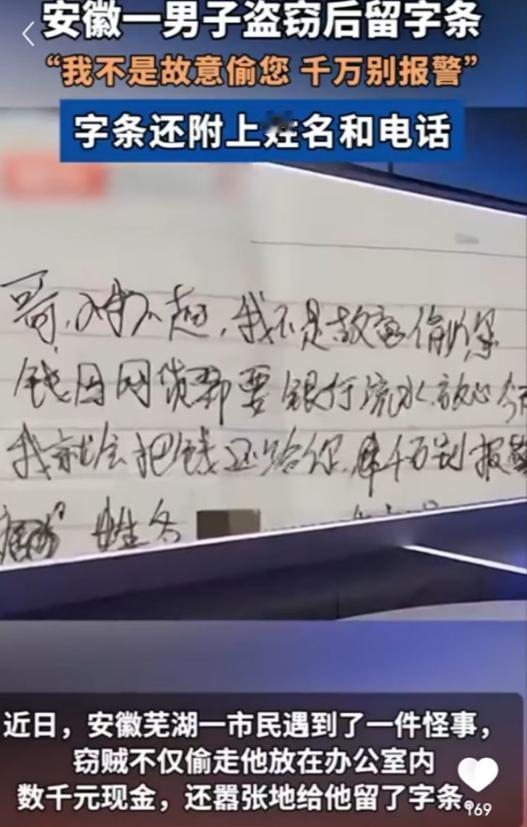 安徽一男子盗窃后留字条
“我不是故意偷您 千万别报警”
字条还附上姓名和电话
哥，对不起，我不是故意偷您
钱因网货都要银行流水，放心
我就会把钱还给你，千万别报警
姓名
近日，安徽芜湖一市民遇到了一件怪事，
窃贼不仅偷走他放在办公室内
数千元现金，还嚣张地给他留了字条。
169